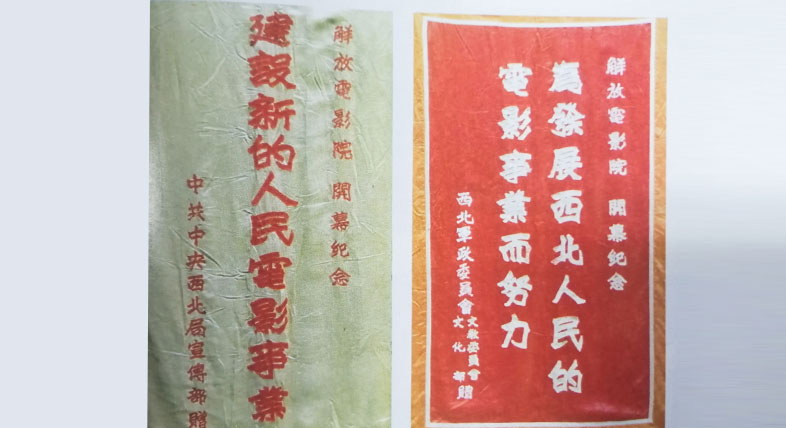 解放電影院 開幕纪念
建設新的人民電影事業
中共中央西北局宣傳部贈
解放電影院 開幕纪念
為發展西北人民的
電影事業而努力
西北軍政委員會
文教委員會
文化部贈